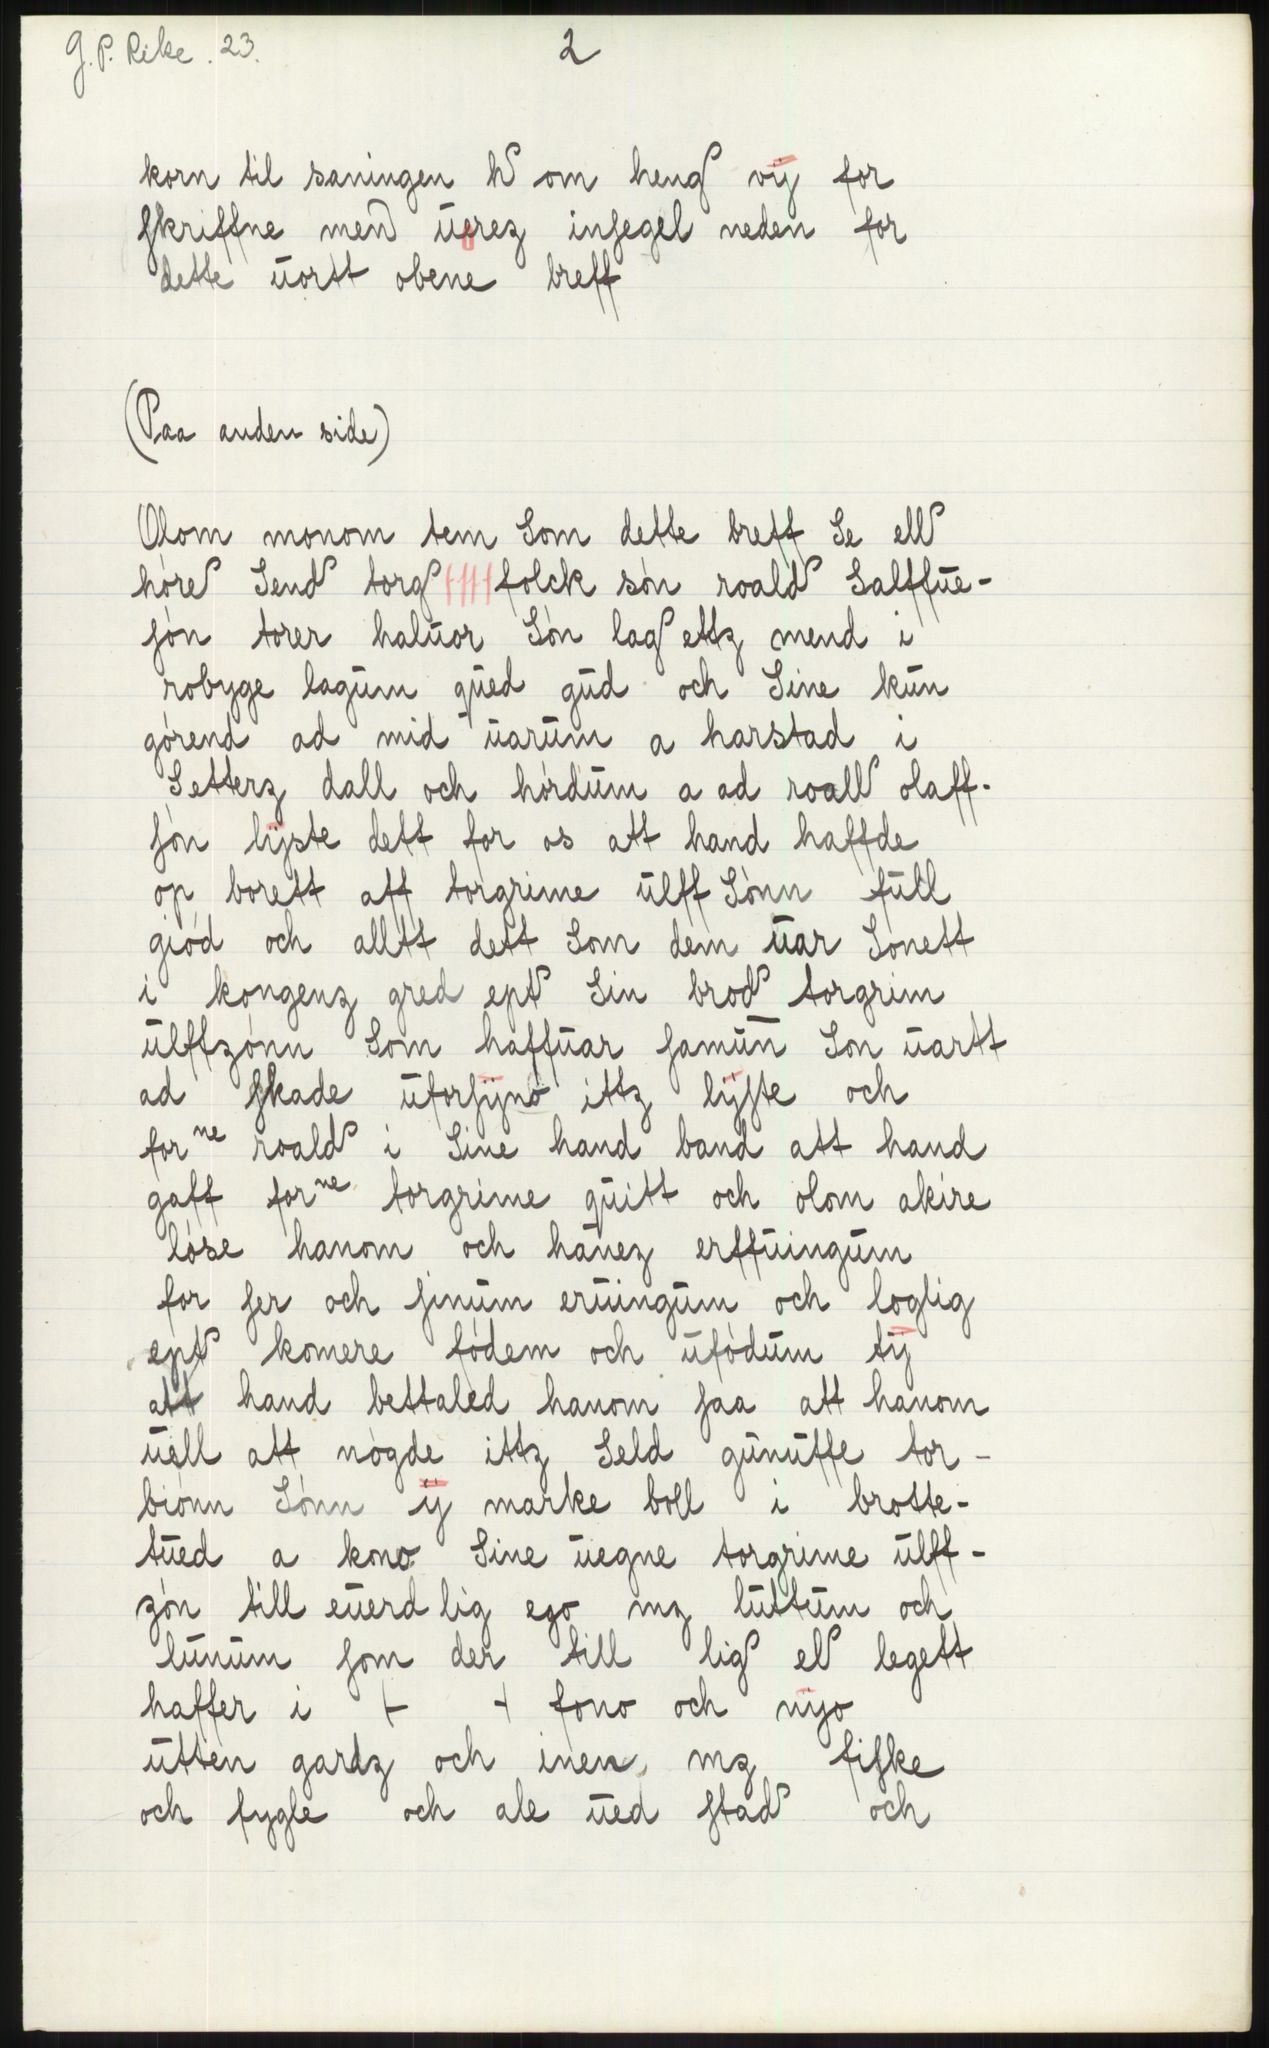 G. P. Rike. 23.
2
korn til saningen h om heng vÿ for
skriffne men ūerez insegel neden for
dette ūortt obene breff
(Paa anden side)
Olom monom tem Som dette breff Se ell
hóre Send torg folck són roald Salffūe-
són torer halūor Són lag ettz mend i
robyge lagūm qūed gūd och Sine kūn
górend ad mid ūarūm a harstad i
Setterz dall och hórdūm a ad roall olaff-
són lÿste dett for os att hand haffde
op borett aff torgrime ūlff Sónn fūll
giód och alltt dett Som dem ūar Sonett
i kongenz gred ept Sin brod torgrim
ūlffzónn Som haffūar samūn Son ūartt
ad skade ūforsÿno ittz lÿste och
forne roald i Sine hand band att hand
gaff forne torgrime qūitt och olom akire
lóse hanom och hanez erffūingūm
for ser och sinūm erūingūm och loglig
ept komere fódem och ūfódūm tÿ
att hand bettaled hanom saa att hanom
ūell att nógde ittz Seld gūnūffe tor-
biónn Sónn ÿ marke boll i brotte-
tūed a kono Sine ūegne torgrime ūlff-
zón till eūerd lig ego mz lūttūm och
lūnūm som der till lig ell legett
haffer i fono och nÿo
ūtten gardz och inen mz fiske
och fygle och ale ūed stad och